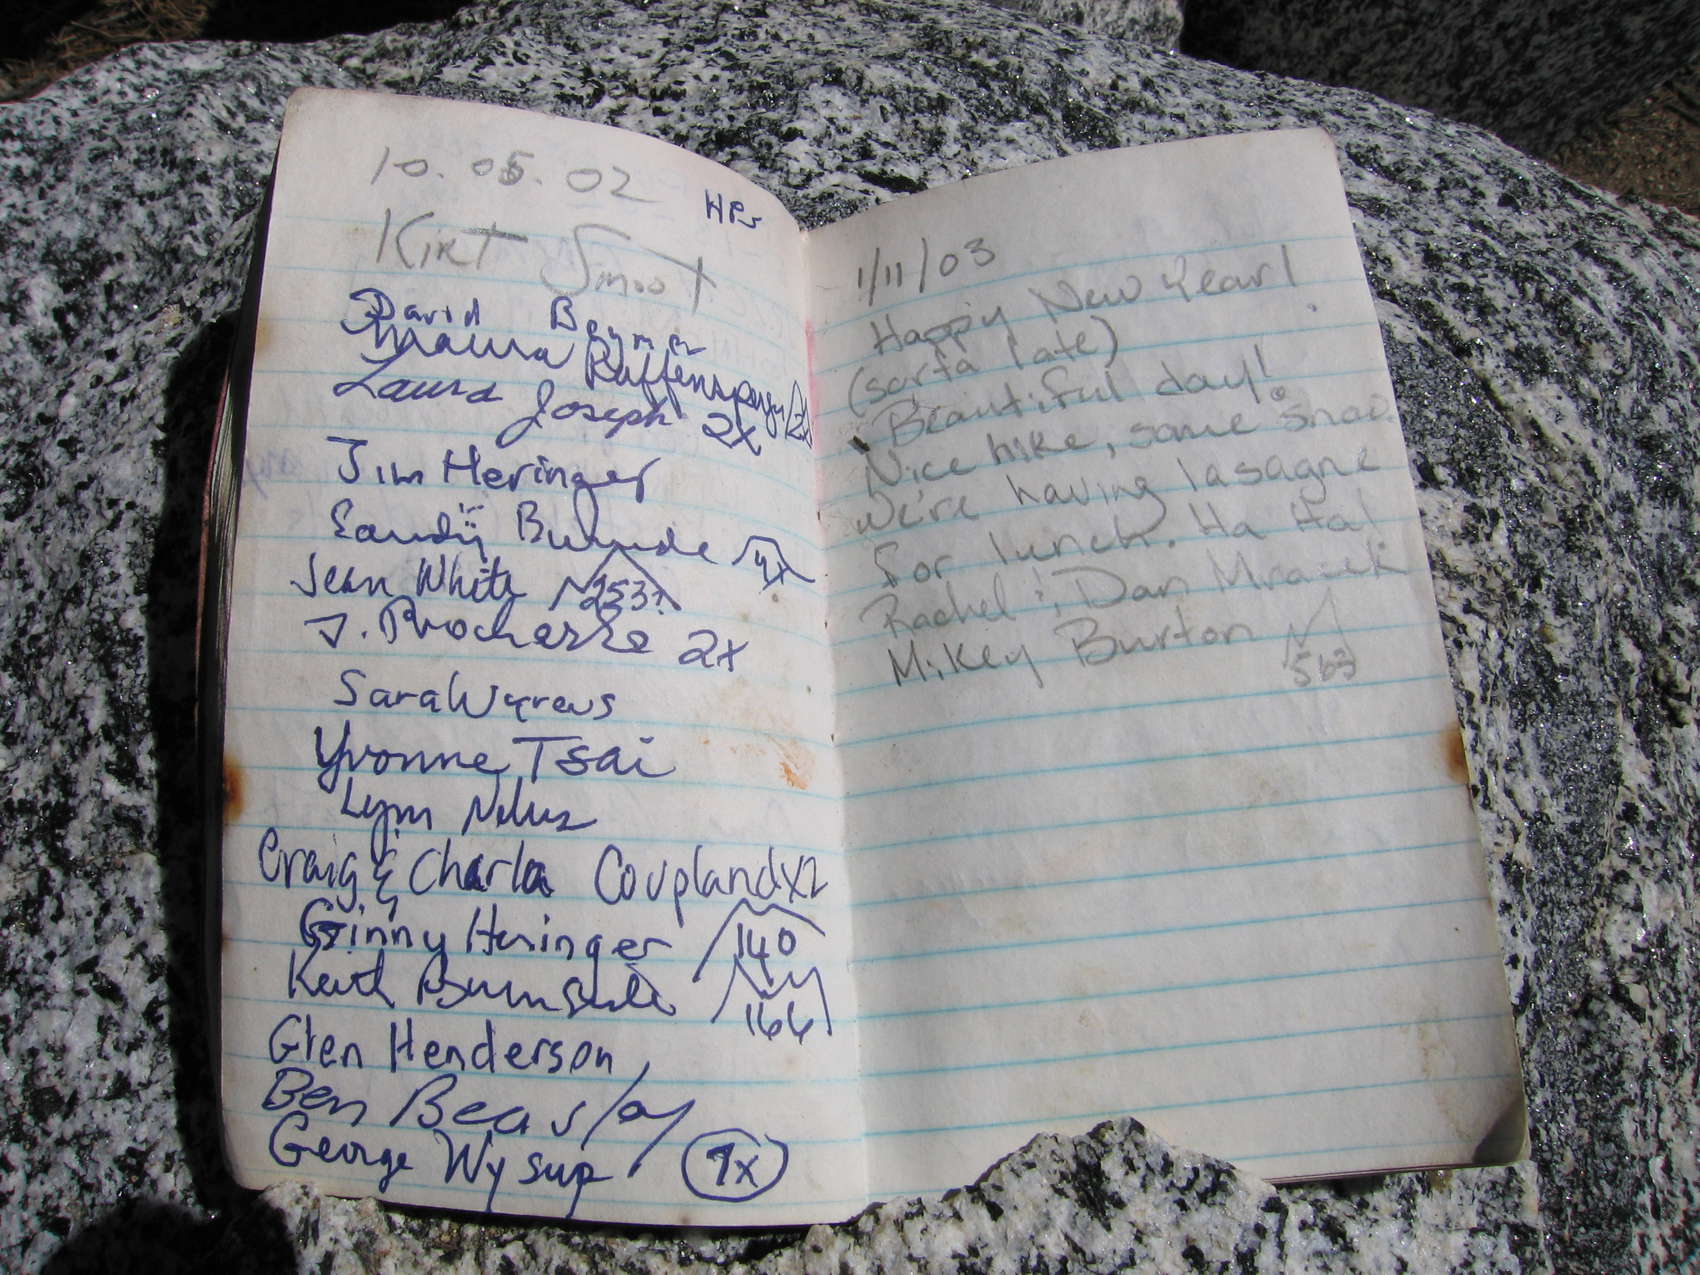 10.05.02
HPS
Kirt Smoot
David Beymer
Maura Raffensperger
Laura Joseph 2x
Jim Heringer
Sandy 4x
Jean White 253?
J. 2x
Sara Wyrens
Yvonne Tsai
Lynn
Craig & Charla Coupland x2
Ginny Heringer 140
Keith Burnside 166
Glen Henderson
Ben Beasley
George Wysup 9x
1/11/03
Happy New Year!
(sorta late)
Beautiful day!
Nice hike, some snow.
We're having lasagne
for lunch. Ha Ha!
Rachel & Dan
Mikey Burton 563